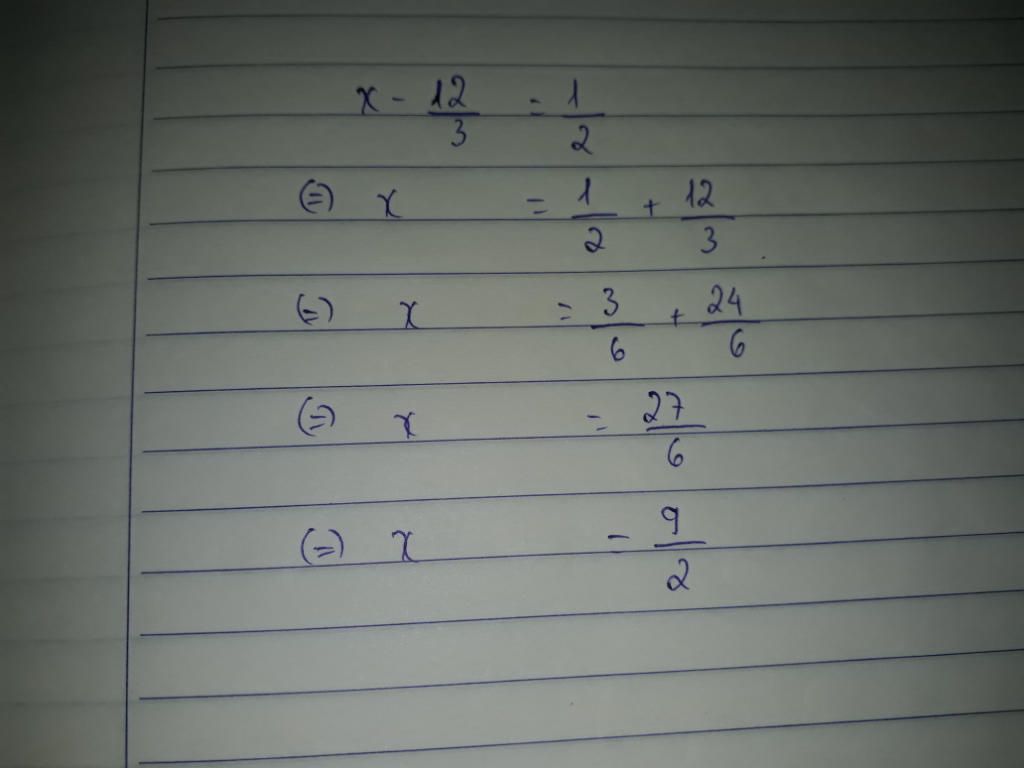 x - 12/3 = 1/2
(=) x = 1/2 + 12/3
(=) x = 3/6 + 24/6
(=) x = 27/6
(=) x = 9/2